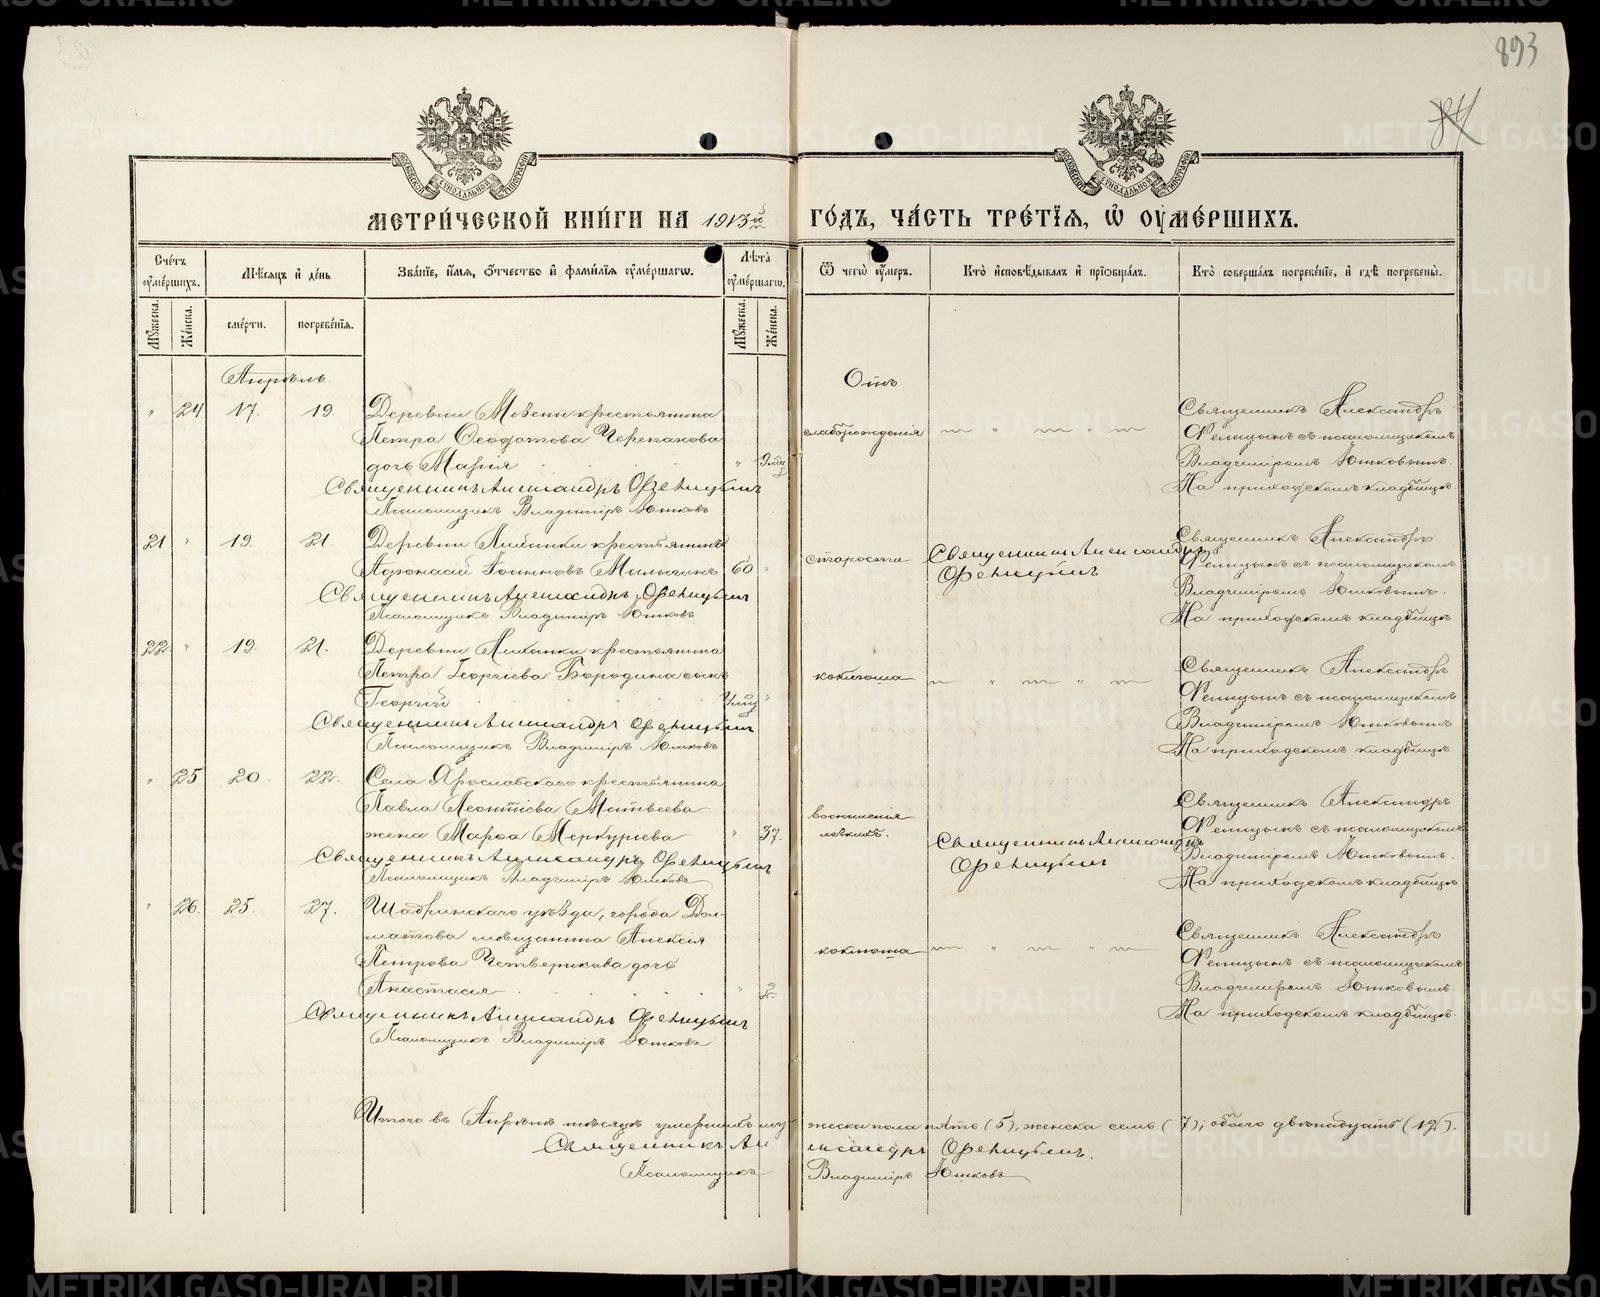 893
84
МЕТРИЧЕСКОЙ КНИГИ НА 1913й ГОДЪ, ЧАСТЬ ТРЕТІЯ, Ѿ ОУМЕРШИХЪ.
Счетъ оумершихъ.
Мѣсяцъ и день
Званіе, имя, отчество и фамилія оумершагѡ.
Лѣта оумершагѡ.
Ѿ чегѡ оумеръ.
Кто исповѣдывалъ и пріобщалъ.
Кто совершалъ погребеніе, и гдѣ погребены.
Мужеска.
Женска.
смерти.
погребенія.
Мужеска.
Женска.
Апрѣль.
Отъ
24 17. 19.
крестьянина
Петра Ѳеодотова Черепанова
дочь Марія 9 мц
Священникъ Александръ
Псаломщикъ Владиміръ Ютковъ
слаборожденія
Священникъ Александръ
съ псаломщикомъ
Владиміромъ Ютковымъ.
На приходскомъ кладбищѣ.
21 19. 21.
Деревни крестьянинъ
60
Священникъ Александръ
Псаломщикъ Владиміръ Ютковъ
старости
Священникъ Александръ
Священникъ Александръ
съ псаломщикомъ
Владиміромъ Ютковымъ.
На приходскомъ кладбищѣ
22 19. 21.
Деревни крестьянина
Петра Георгіева Бородина сынъ
Георгій
Священникъ Александръ
Псаломщикъ Владиміръ Ютковъ
коклюша
Священникъ Александръ
съ псаломщикомъ
Владиміромъ Ютковымъ
На приходскомъ кладбищѣ
25 20. 22.
Села Ярославскаго крестьянина
Павла Леонтіева Матвеева
жена Марѳа Меркурьева 37.
Священникъ Александръ
Псаломщикъ Владиміръ Ютковъ
воспаленія
легкихъ.
Священникъ Александръ
Священникъ Александръ
съ псаломщикомъ
Владиміромъ Ютковымъ.
На приходскомъ кладбищѣ
26. 25. 27.
Шадринскаго уѣзда, города Дол-
матова мѣщанина Алексія
Петрова Четверикова дочь
Анастасія 2.
Священникъ Александръ
Псаломщикъ Владиміръ Ютковъ
коклюша
Священникъ Александръ
съ псаломщикомъ
Владиміромъ Ютковымъ.
На приходскомъ кладбищѣ.
Итого въ Апрѣлѣ мѣсяцѣ умершихъ мужеска пола пять (5), женска семь (7); обоего двѣнадцать (12).
Священникъ Александръ
Псаломщикъ Владиміръ Ютковъ
METRIKI.GASO-URAL.RU